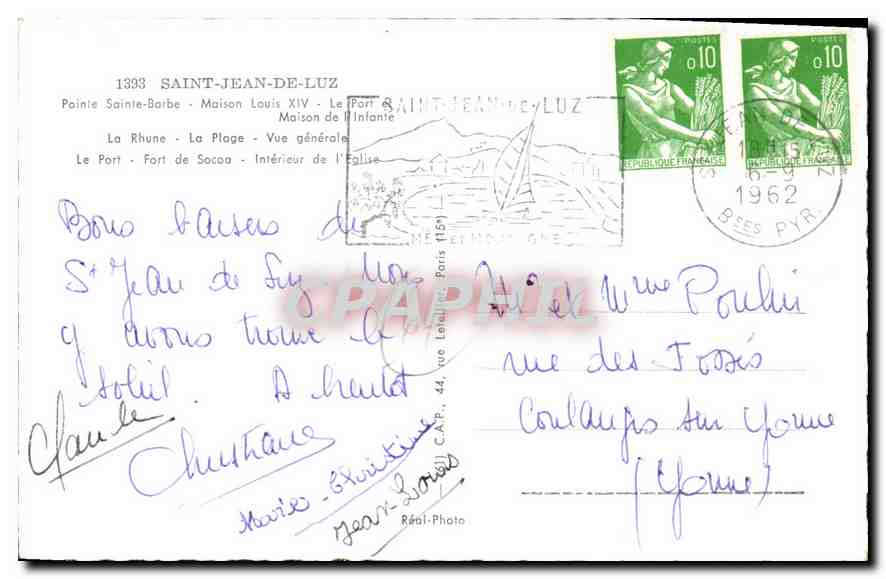 1393 SAINT-JEAN-DE-LUZ
Pointe Sainte-Barbe - Maison Louis XIV - Le Port et
Maison de l'Infante
La Rhune - La Plage - Vue générale
Le Port - Fort de Socoa - Intérieur de l'Eglise
SAINT-JEAN-DE-LUZ
MER ET MONTAGNE
POSTES
0,10
REPUBLIQUE FRANÇAISE
POSTES
0,10
REPUBLIQUE FRANÇAISE
ST JEAN DE LUZ
18H15
6-9
1962
BSES PYR.
Bons baisers de
St Jean de Luz. Nous
y avons trouvé le
soleil. A bientôt
Claude
Christiane
Marie-Christine
Jean-Louis
C.A.P., 44, rue Letellier, Paris (15e)
Réal-Photo
CPAPHIL
Mr et Mme Poulin
rue des Fossés
Coulanges sur Yonne
(Yonne)